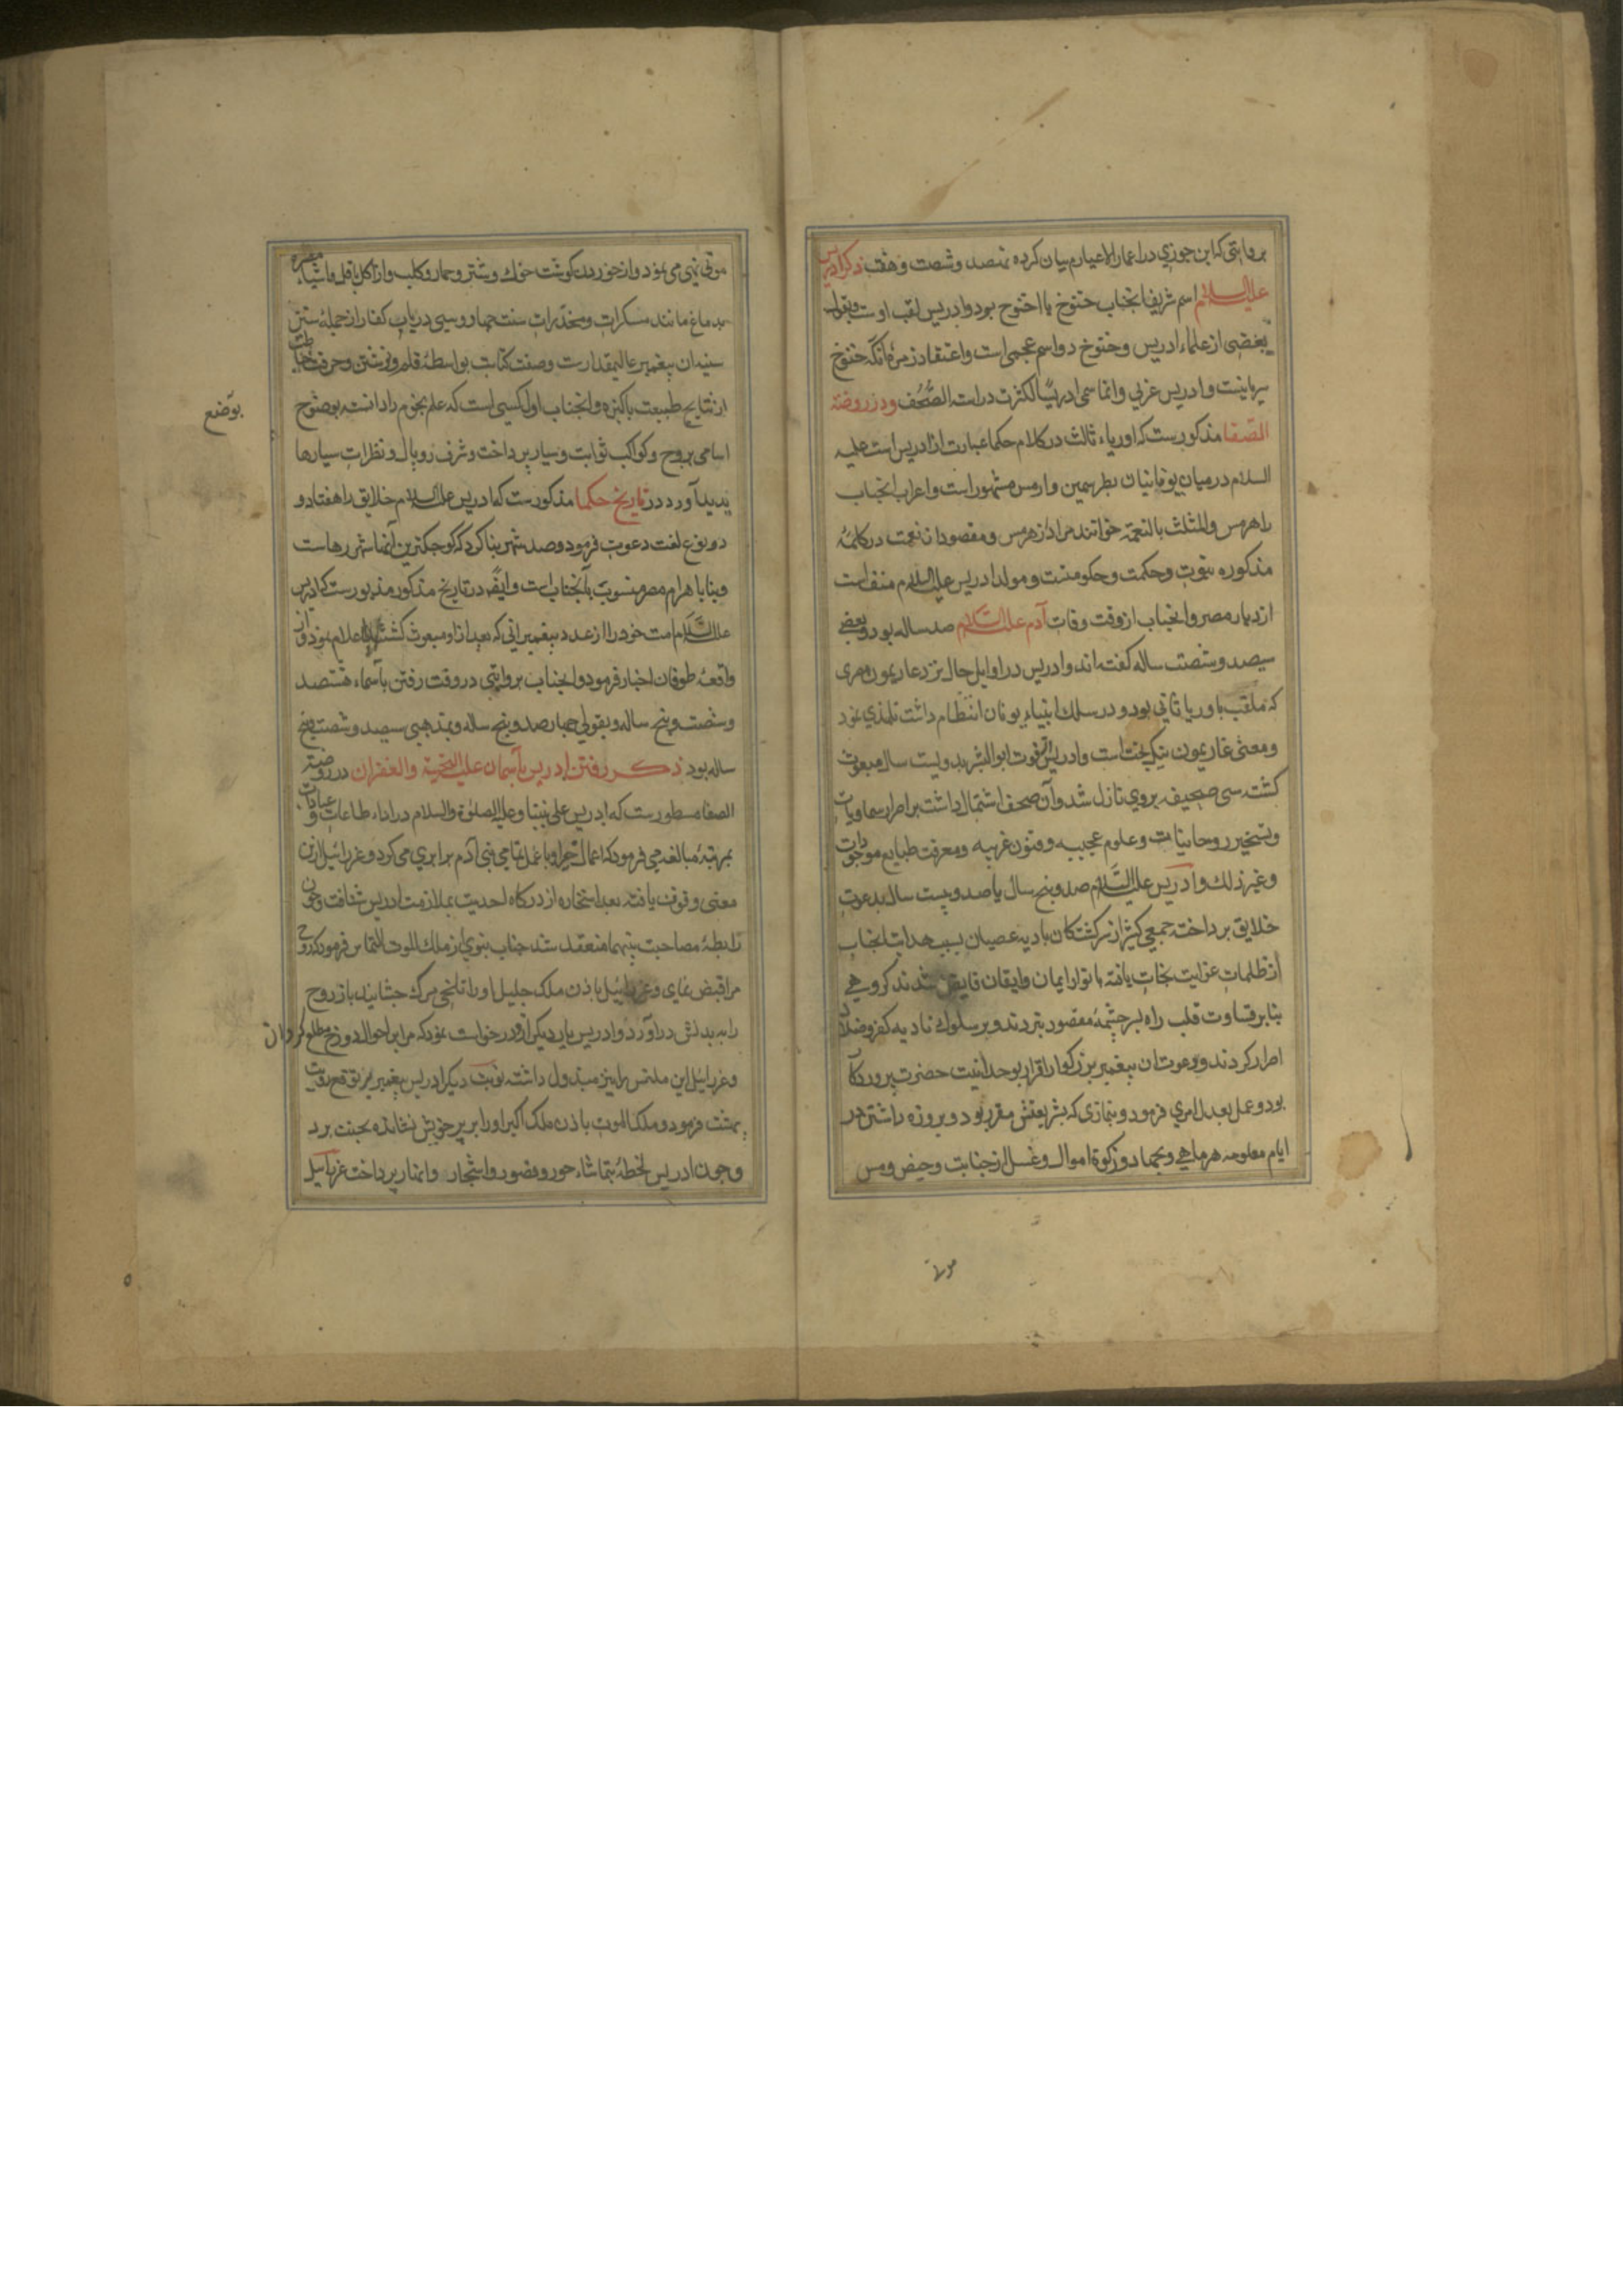 بروایتی که ابن جوزی در اعمار الاعیان بیان کرده نهصد و شصت و هفت ذکر ادریس
علیه السلام اسم شریف آنجناب خنوخ یا اخنوخ بود و ادریس لقب اوست و بقول
بعضی از علماء ادریس و خنوخ دو اسم عجمی است و اعتقاد زمره آنکه خنوخ
سریانیست و ادریس عربی و انما سمی ادریسا لکثرت دراست الصُّحُف و در روضة
الصّفا مذکورست که اوریاء ثالث در کلام حکما عبارت از ادریس است علیه
السلام در میان یونانیان بطرسمین و ارمس مشهور است و اعراب آنجناب
را هرمس و المثلث بالنعمة خوانند مراد از هرمس و مقصود از نعمت در کلمهٔ
مذکوره نبوت و حکمت و حکومتست و مولد ادریس علیه السلام منف است
از دیار مصر و آنجناب از وقت وفات آدم علیه السّلام صد ساله بود و بعضی
سیصد و شصت ساله گفته اند و ادریس در اوایل حال نزد غاریمون مصری
که ملقب باوریا ثانی بود و در سلک انبیاء یونان انتظام داشت تلمذی نمود
و معنی غاریمون نیکبخت است و ادریس فوت ابو البشر بدویست سال مبعوث
کشت سی صحیفه بروی نازل شد و آن صحف اشتمال داشت بر اسرار سماویات
و تسخیر روحانیات و علوم عجیبه و فنون غریبه و معرفت طبایع موجودات
و غیر ذلک و ادریس علیه السّلام صد و پنج سال یا صد و بیست سال بدعوت
خلایق پرداخته جمعی کثیر از سرکشتکان بادیه عصیان بسبب هدایت آنجناب
از ظلمات غوایت نجات یافته بانوار ایمان و ایقان فایض شدند و کروهی
بنابر قساوت قلب راه بسرچشمهٔ مقصود نبردند و بر سلوک بادیه کفر و ضلال
اصرار کردند و دعوت آن پیغمبر بزرکوار اقرار بوحدانیت حضرت پروردکار
بود و عمل بعدل امری فرمود و بنمازی که بشریعتش مقرر بود و بروزه داشتن در
ایام معلومه هر ماهی و بجهاد و زکوة اموال و غسل از جنابت و حیض و مس
موتی
موتی نهی می نمود و از خوردن کوشت خوک و شتر و حمار و کلب و از اکل باقلا و اشیاء مضره
بدماغ مانند مسکرات و مخدرات سنت جهاد و سبی ذریات کفار از جمله سنن
سنیه آن پیغمبر عالیمقدارست و صنعت کتابت بواسطهٔ قلم و نوشتن و حرفت خیاطت
از نتایج طبیعت پاکیزه و آنجناب اول کسی است که علم نجوم را دانسته بوضوح
بوضع
اسامی بروج و کواکب ثوابت و سیار پرداخت و شرف و وبال و نظرات سیارها
پدید آورد در تاریخ حکما مذکورست که ادریس علیه السلام خلایق را هفتاد و
دو نوع لغت دعوت فرمود و صد شهر بنا کرد که کوچکترین آنها شهر رهاست
و بناء اهرام مصر منسوب بآنجناب است و ایضً در تاریخ مذکور مذبورست که ادریس
علیه السّلام امت خود را از عدد پیغمبرانی که بعد از او مبعوث کشتند اعلام نمود و از
واقعهٔ طوفان اخبار فرمود و آنجناب بروایتی در وقت رفتن بآسماء هشتصد
و شصت و پنج ساله و بقولی چهار صد و پنج ساله و بمذهبی سیصد و شصت و پنج
ساله بود ذکر رفتن ادریس بآسمان علیه التحیة و الغفران در روضة
الصفا مسطورست که ادریس علی نبینا و علیه الصلوة و السلام در اداء طاعات و عبادات
بمرتبهٔ مبالغه می فرمود که اعمال خیر او با عمل تمامی بنی آدم برابری می کرد و عزرائیل ازین
معنی وقوف یافته بعد استخاره از درکاه احدیت بملازمت ادریس شتافت و چون
رابطهٔ مصاحبت بینهما منعقد شد جناب نبوی از ملک الموت التماس فرمود که روح
مرا قبض نمای و عزرائیل باذن ملک جلیل او را تلخی مرک چشانیده باز روح
را به بدنش در آورد و ادریس بار دیکر ازو درخواست نمود که مرا بر احوال دوزخ مطلع کردان
و عزرائیل این ملتمس را نیز مبذول داشته نوبت دیکر ادریس پیغمبر توقع رویت
بهشت فرمود و ملک الموت باذن ملک اکبر او را بر پر خویش نشانده بجنت برد
و چون ادریس لحظهٔ بتماشاء حور و قصور و اشجار و انهار پرداخت عزرائیل